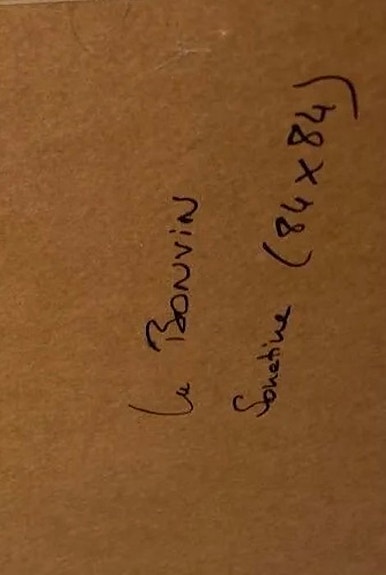 Le BONViN
Sonatine (84x84)